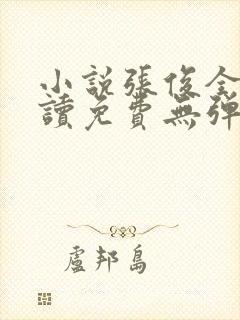 小說張俊全
讀免費無彈
盧邦島